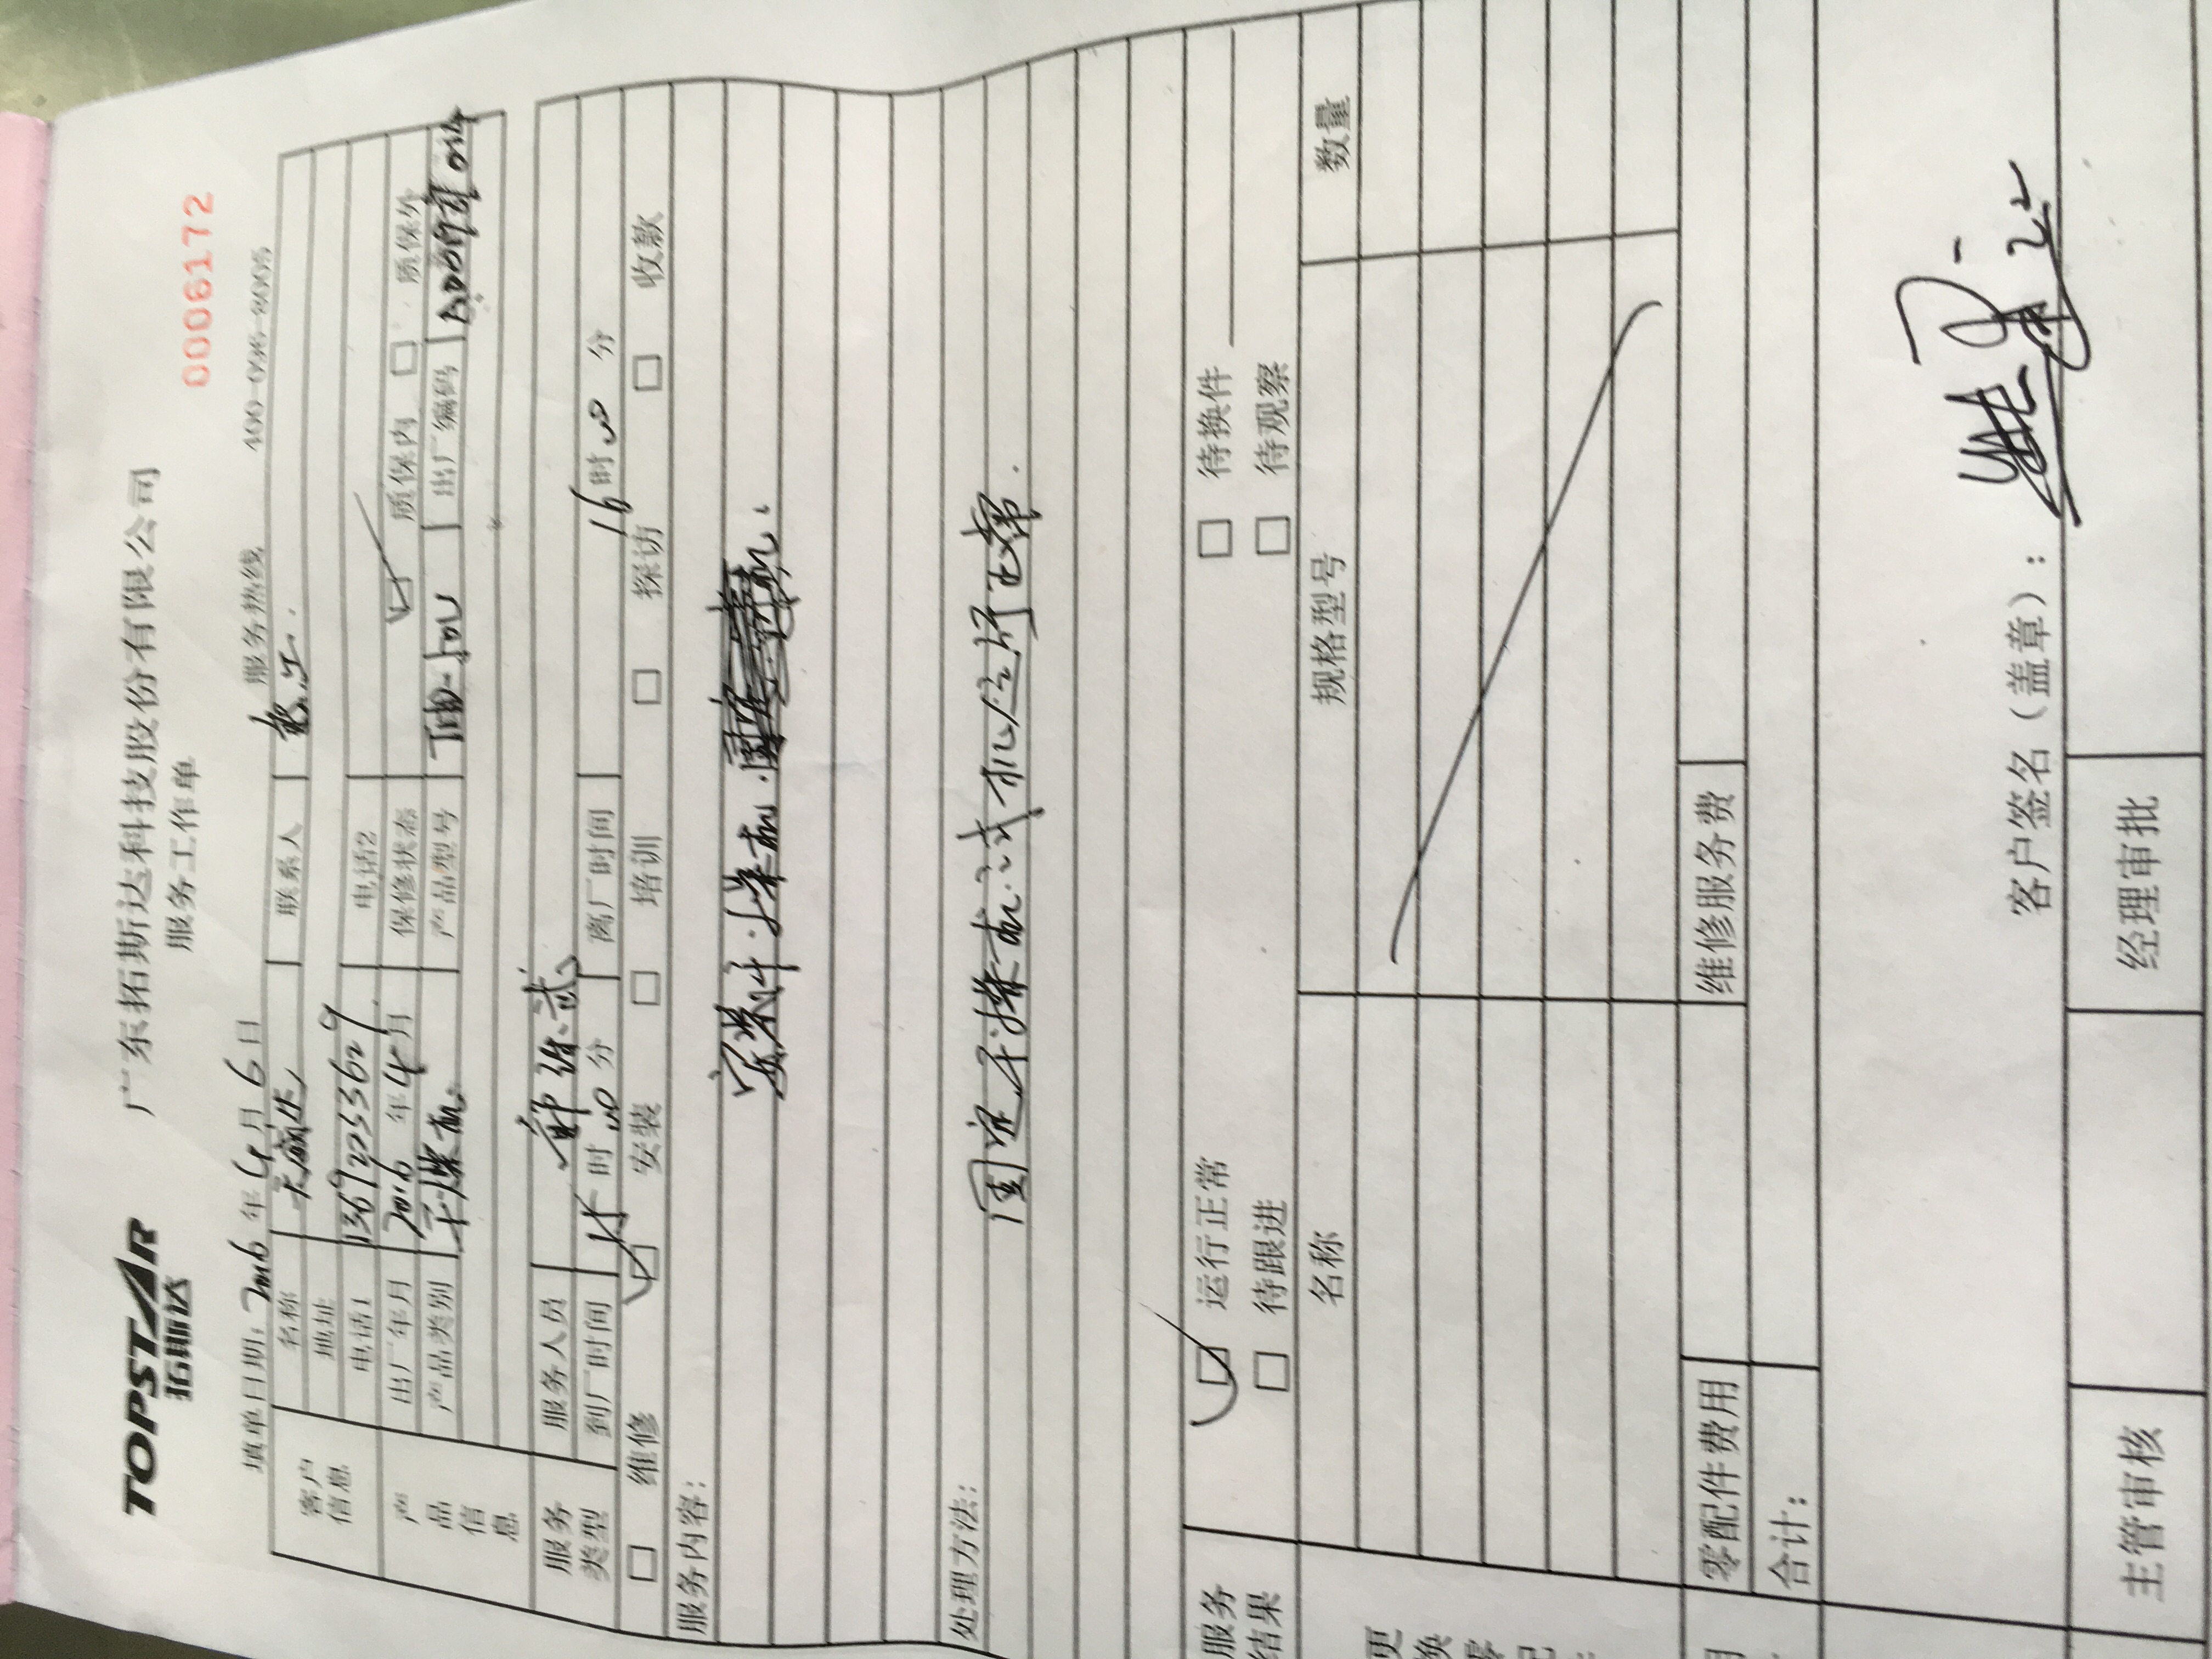 TOPSTAR
拓斯达
广东拓斯达科技股份有限公司
服务工作单
0006172
填单日期: 2016 年 4 月 6 日
服务热线 400-096-8005
客户信息
名称 联系人
地址
电话1 13692253629 电话2
产品信息
出厂年月 2016 年 4 月 保修状态 质保内 质保外
产品类别 干燥机 产品型号 出厂编码
服务人员
服务类型
到厂时间 15 时 00 分 离厂时间 16 时 00 分
维修 安装 培训 探访 收款
服务内容:
安装干燥机.
处理方法:
固定干燥机试机运行正常.
服务结果
运行正常 待换件
待跟进 待观察
名称 规格型号 数量
零配件费用 维修服务费
合计:
客户签名(盖章):
主管审核 经理审批